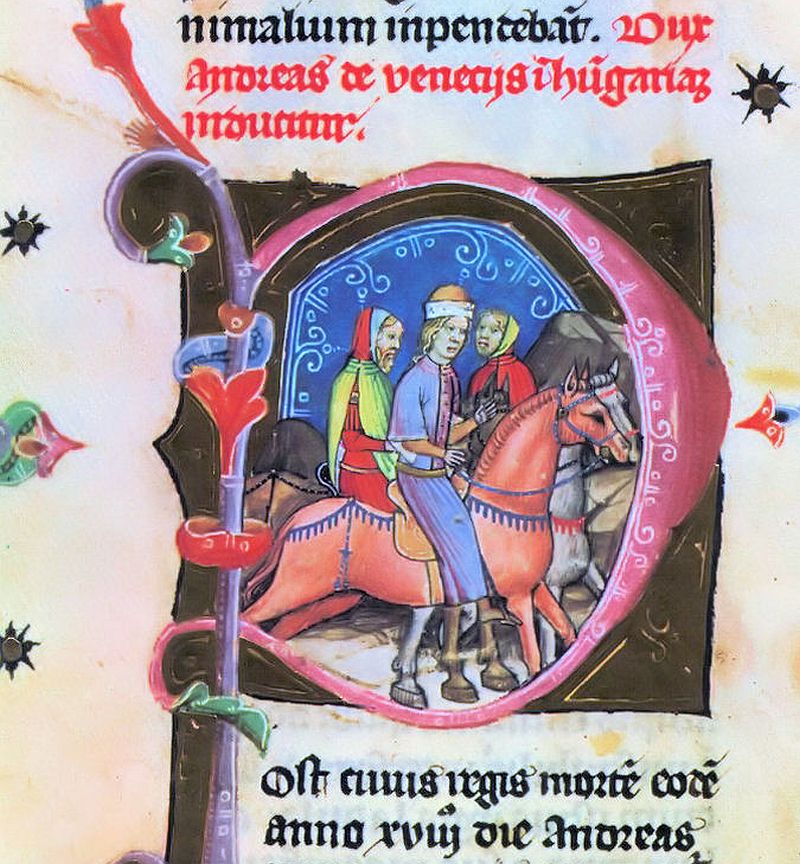 nimalium inpendebat̃. Dux
Andreas de venecijs ī hũgariaʒ
inducitur.
Ost cuius regis mortẽ eodẽ
anno xviij die Andreas